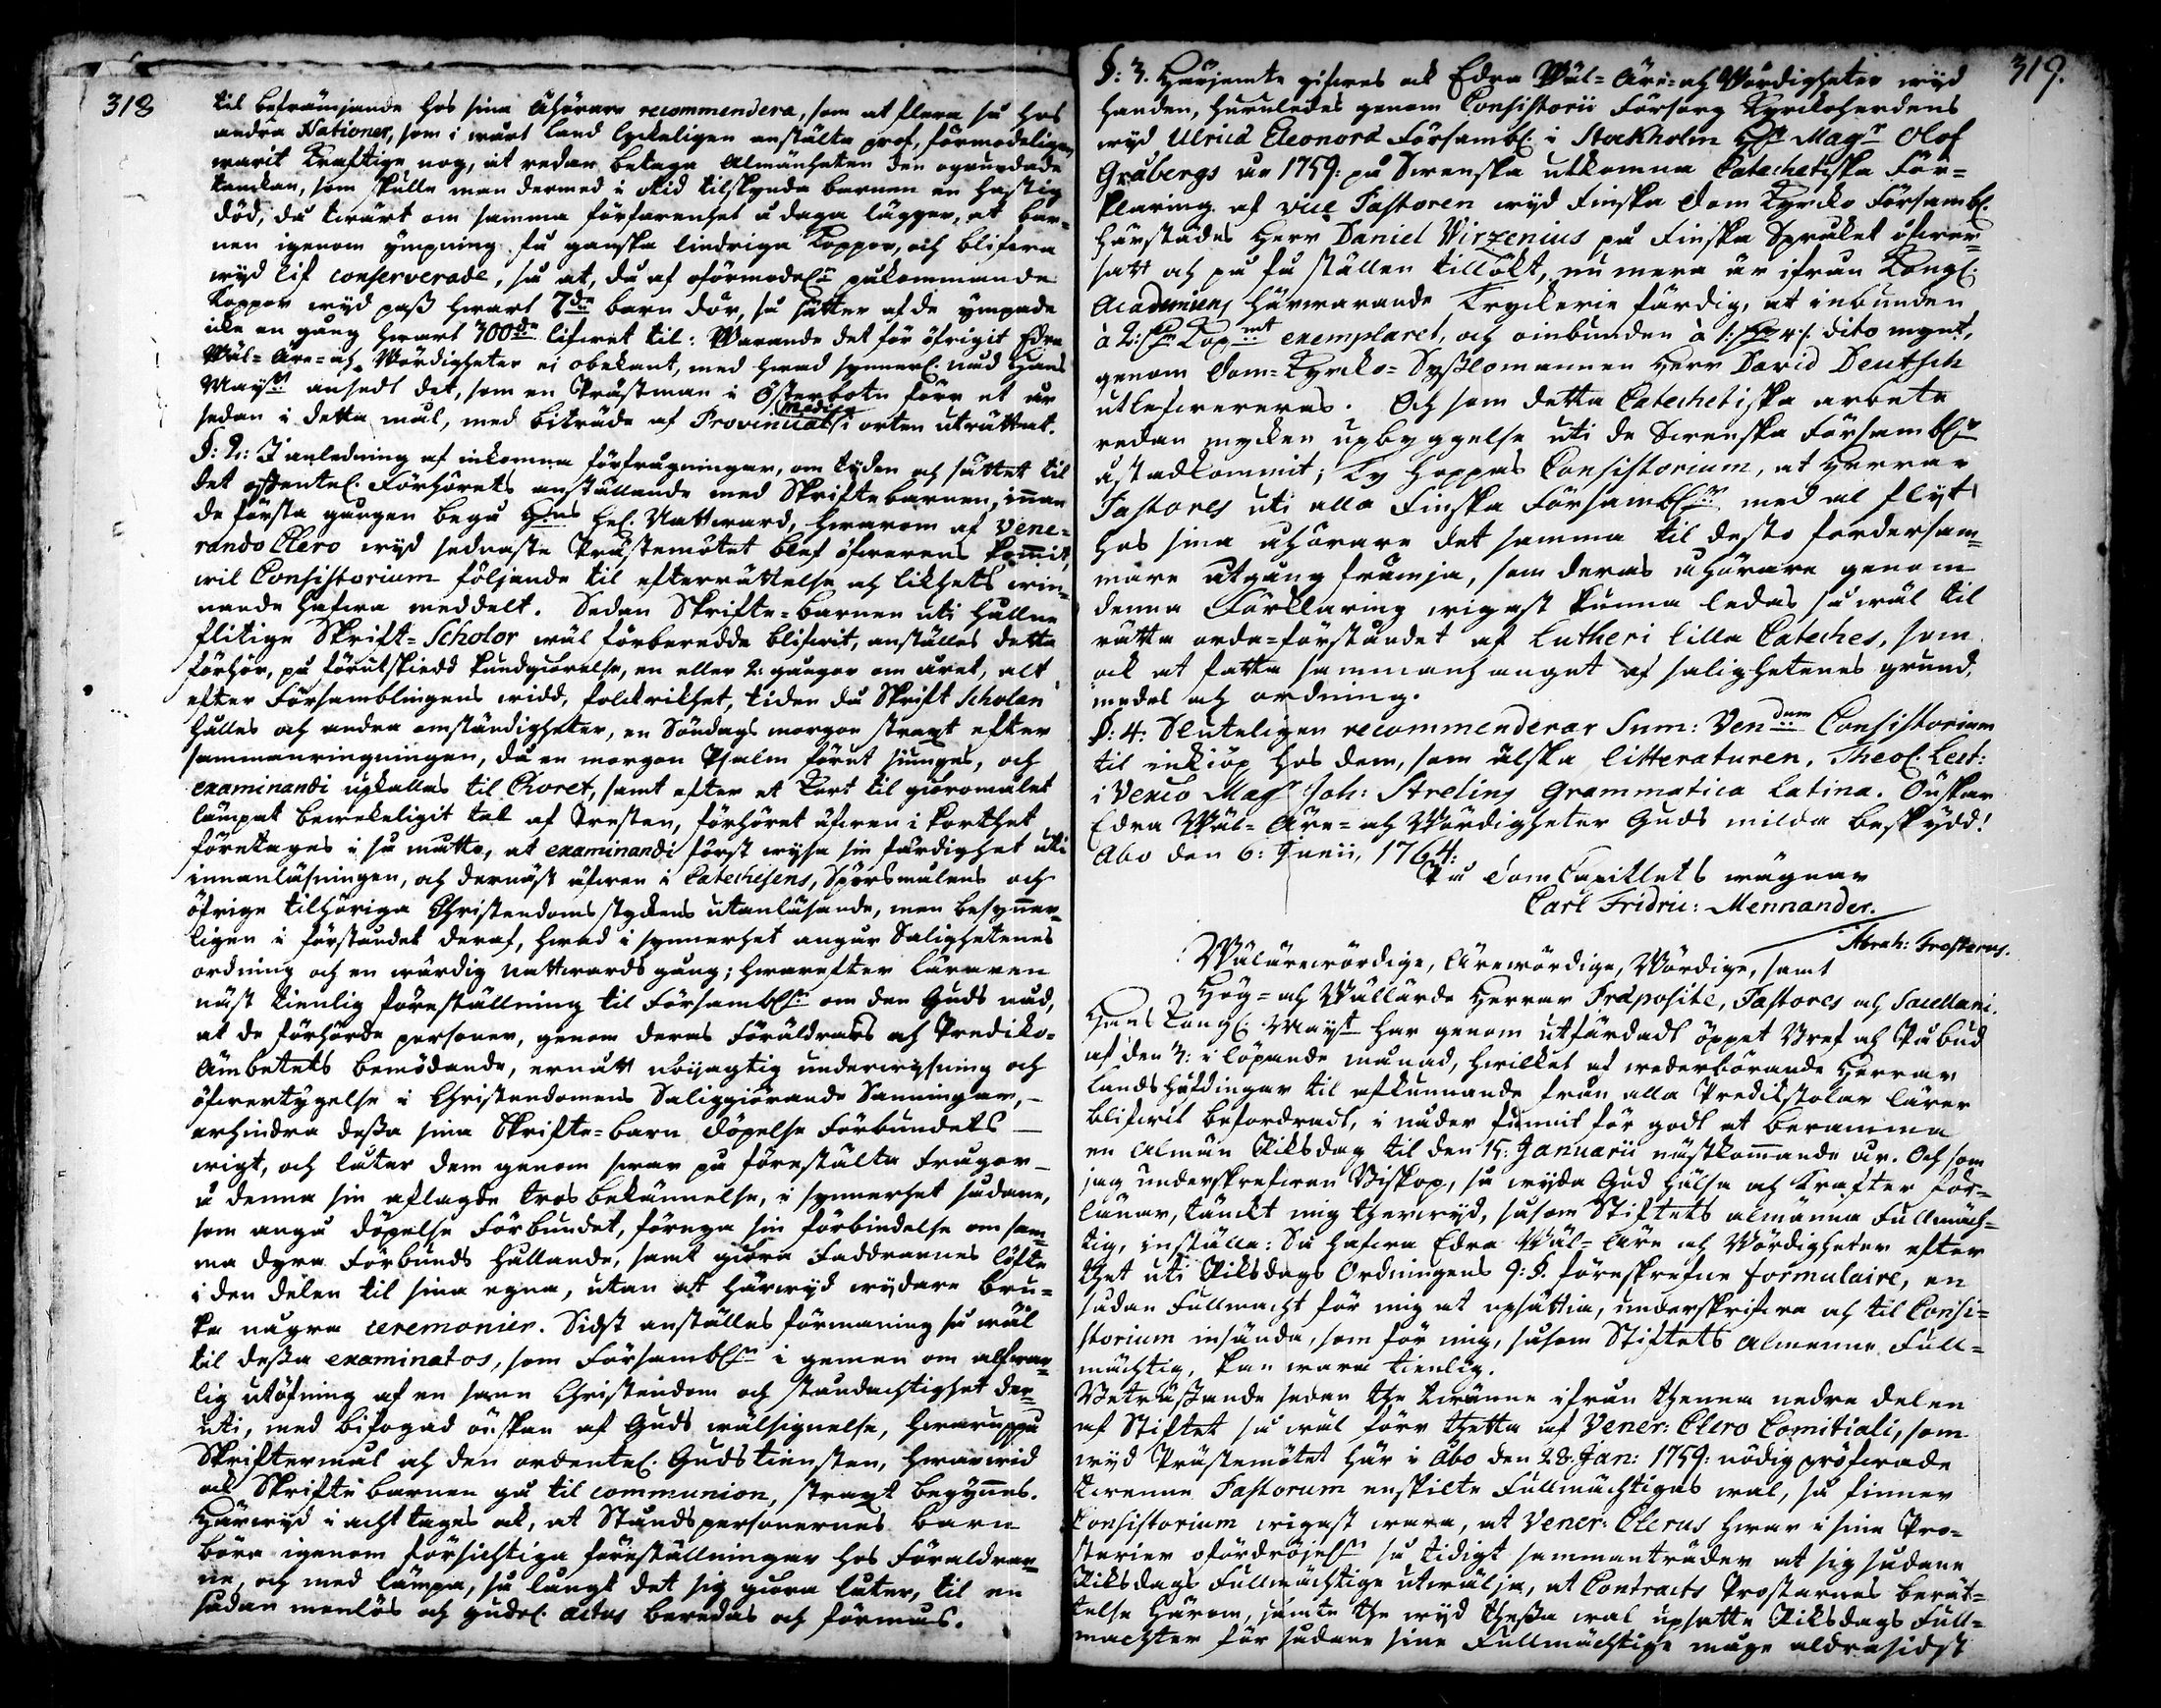 318
til befrämjande hos sina Åhörare recommendera, som at flera så hos
andra Nationer, som i wårt land lyckeligen anstälte prof, förmodeligen
warit kraftige nog, at redan betaga Almänheten den ogrundade
tanckan, som skulle man dermed i otid tilskynda barnen en hastig
död, då twärt om samma förfarenhet å daga lägger, at bar-
nen igenom ympning få ganska lindriga Koppor, och blifwa
wijd lif conserverade, så at, då af oförmodel:n påkommande
Koppor wijd pass hwart 7:de barn dör, så sätter af de ympade
icke en gång hwart 300:de lifwet til: Warande det för öfrigit Edra
Wäl-Äre- och Wördigheter ei obekant, med hwad synnerl. nåd Hans
May:tt ansedt det, som en Prästman i Österbotn förr et år
sedan i detta mål, med biträde af Provincial Medici i orten uträttat.
§: 2: I anledning af inkomna förfrågningar, om tijden och sättet til
det offentel. Förhörets anställande med Skriftebarnen, innan
de första gången begå H:ns hel. Nattward, hwarom af Vene-
rando Clero wijd sednaste Prästemötet blef öfwerens kommit,
wil Consistorium följande til efterrättelse och likhets win-
nande hafwa meddelt. Sedan Skrifte-barnen uti hållne
flitige Skrift-Scholor wäl förberedde blifwit, anställes detta
förhör, på förutskiedd kundgiörelse, en eller 2: gånger om året, alt
efter Församblingens widd, folckrikhet, tiden då Skrift Scholan
hålles och andra omständigheter, en Söndags morgon straxt efter
sammanringningen, då en morgon Psalm förut siunges, och
examinandi upkallas til Choret, samt efter et kort til giöromålet
lämpat bewekeligit tal af Presten, förhöret äfwen i korthet
företages i så matto, at examinandi först wijsa sin färdighet uti
innanläsningen, och dernäst äfwen i Catechesens, Spörsmålens och
öfrige tilhöriga Christendoms styckens utanläsande, men besynner-
ligen i förståndet deraf, hwad i synnerhet angår Salighetenes
ordning och en wärdig nattwards gång; hwarefter läraren
näst tienlig föreställning til Försambl:n om den Guds nåd,
at de förhörde personer, genom deras Föräldrars och Prediko-
Ämbetets bemödande, ernått nöijagtig underwijsning och
öfwertygelse i Christendomens Saliggiörande Sanningar,
erhindra dessa sina Skrifte-barn döpelse Förbundets
wigt, och låter dem genom swar på förestälta frågor
å denna sin aflagde tros bekännelse, i synnerhet sådane,
som angå döpelse Förbundet, förnya sin förbindelse om sam-
ma dyra Förbunds hållande, samt giöra Faddrarnes löfte
i den delen til sina egna, utan at härwijd wijdare bru-
ka några ceremonier. Sidst anställes förmaning så wäl
til dessa examinatos, som Försambl:n i gemen om alfwar-
lig utöfning af en sann Christendom och ståndachtighet der-
uti, med bifogad önskan af Guds wälsignelse, hwaruppå
Skriftermål och den ordentel. Gudstiensten, hwarwid
ock Skrifte barnen gå til communion, straxt begynnes.
Härwijd i acht tages ock, at Ståndspersonernes barn
böra igenom försichtiga föreställningar hos Föräldrar-
ne, och med lämpa, så långt det sig giöra låter, til en
sådan menlös och gudel. actus beredas och förmås.
319.
§: 3. Härjemte gifwes ock Edra Wäl-Äre- och Wördigheter wijd
handen, huruledes genom Consistorii Försorg Kyrckoherdens
wijd Ulrica Eleonora Försambl. i Stockholm H:r Mag:r Olof
Grabergs år 1759: på Swenska utkomna Catechetiska För-
klaring af vice Pastoren wijd Finska Dom Kyrcko Försambl.
härstädes Herr Daniel Wirzenius på Finska Språket öfwer-
satt och på få ställen tillökt, nu mera är ifrån Kongl.
Academiens härwarande Tryckerie färdig, at inbunden
à 2: Kop:mt exemplaret, och oinbunden à 1: 4: dito mynt,
genom Dom-Kyrcko-Sysslomannen Herr David Deutsch
utlefwereras. Och som detta Catechetiska arbete
redan mycken upbyggelse uti de Swenska Försambl:r
åstadkommit; Ty hoppas Consistorium, at Herrar
Pastores uti alla Finska Försambl:r med al flijt
hos sina åhörare det samma til desto fordersam-
mare utgång främja, som deras åhörare genom
denna Förklaring wigast kunna ledas så wäl til
rätta orda-förståndet af Lutheri lilla Cateches, som
ock at fatta sammanhanget af salighetenes grund,
medel och ordning.
§: 4: Sluteligen recommenderar Sum: Ven:dum Consistorium
til inkiöp hos dem, som älska litteraturen, Theol. Lect:
i Vexio Mag: Joh: Strelins Grammatica Latina. Önskar
Edra Wäl-Äre- och Wördigheter Guds milda beskydd!
Åbo den 6: Junii, 1764:
På Dom Capitlets wägnar
Carl Fridric: Mennander.
Abrah: Frosterus.
Wälärewördige, Ärewördige, Wördige, samt
Hög- och Wällärde Herrar Præposite, Pastores och Sacellani.
Hans Kongl. May:tt har genom utfärdadt öppet Bref och Påbud
af den 3: i löpande månad, hwilket af wederbörande Herrar
landshöfdingar til afkunnande från alla Predikstolar lärer
blifwit befordradt, i nåder funnit för godt at beramma
en almän Riksdag til den 15: Januarii nästkommande år. Och som
jag underskrefwen Biskop, så wijda Gud hälsa och krafter för-
länar, tänckt mig therwijd, såsom Stiftets almänna Fullmäch-
tig, inställa: Så hafwa Edra Wäl-Äre och Wördigheter efter
thet uti Riksdags Ordningens 9: §. föreskrefne formulaire, en
sådan Fullmacht för mig at upsättia, underskrifwa och til Consi-
storium insända, som för mig, såsom Stiftets almenne Full-
mächtig, kan wara tienlig.
Beträffande sedan the twänne ifrån thenna nedra delen
af Stiftet så wäl förr thetta af Vener: Clero Comitiali, som
wijd Prästemötet här i Åbo den 28. Jan: 1759: nödig pröfwade
twenne Pastorum enskilte Fullmächtigas wal, så finner
Consistorium wigast wara, at Vener: Clerus hwar i sine Pro-
sterier ofördröjel:n så tidigt sammanträder at sig sådane
Riksdags Fullmächtige utwälja, at Contracts Prostarnes berät-
telse härom, jämte the wijd thessa wal upsatte Riksdags Full-
machter för sådane sine Fullmächtige måge aldrasidst